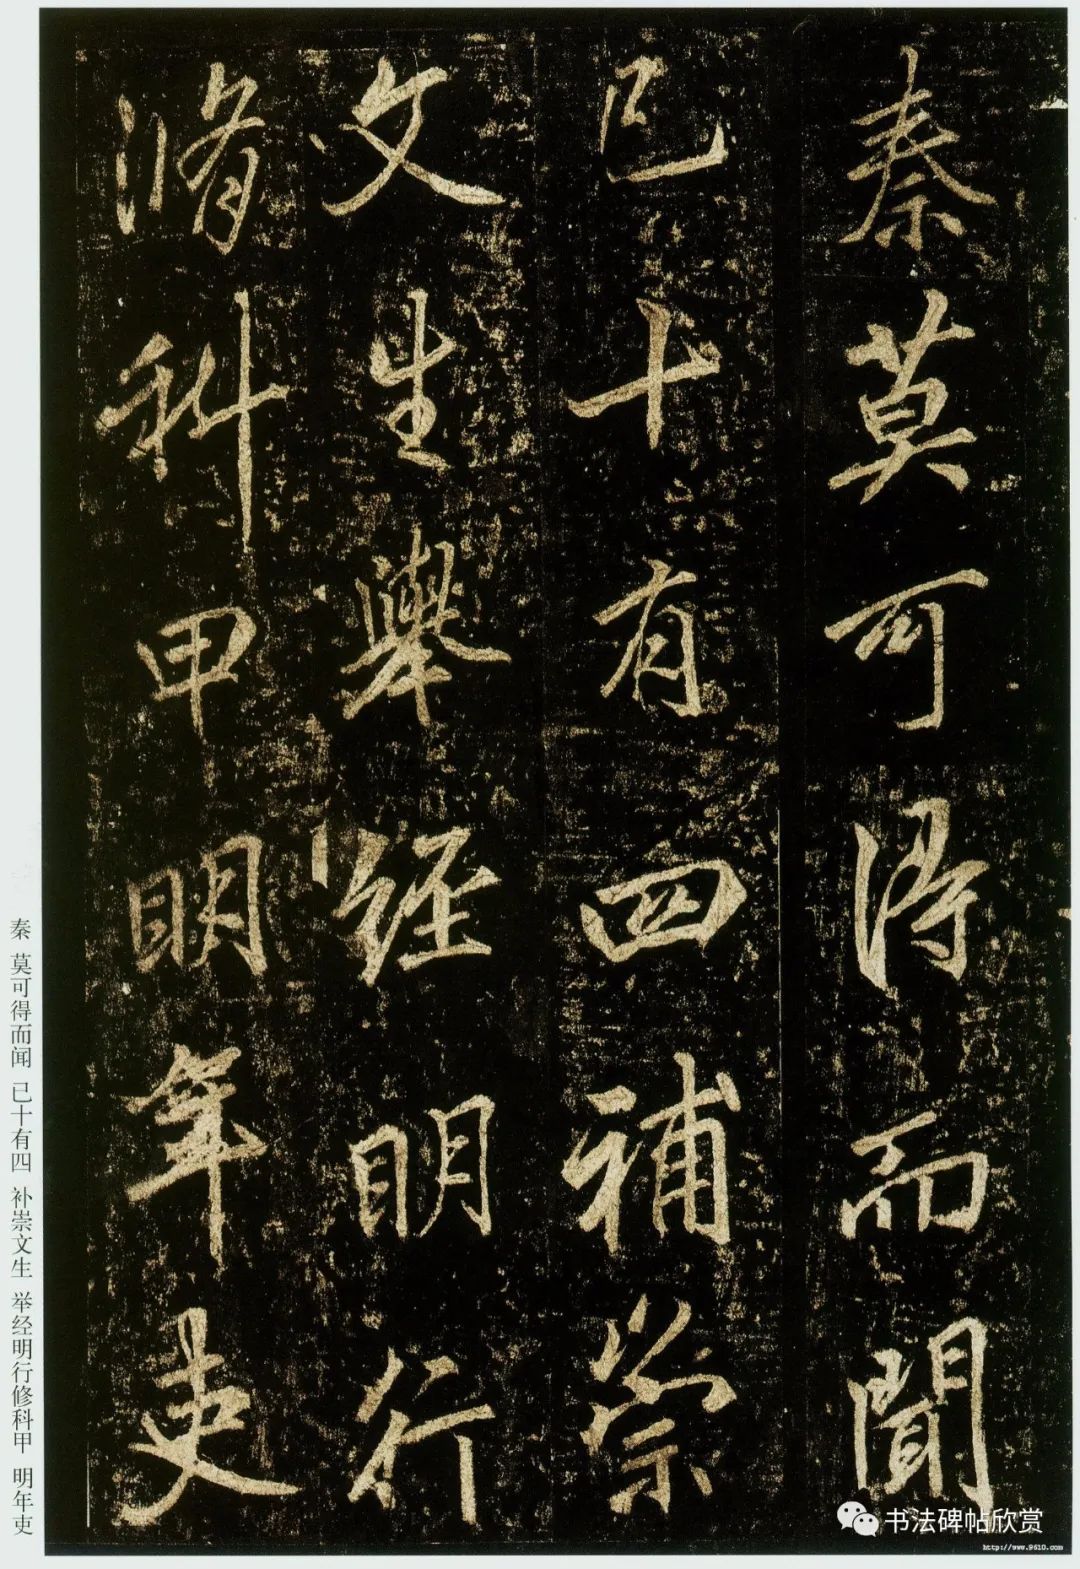 秦莫可得而聞
已十有四補崇
文生舉經明行
脩科甲明年吏
秦 莫可得而闻 已十有四 补崇文生 举经明行修科甲 明年吏
书法碑帖欣赏
http://www.9610.com